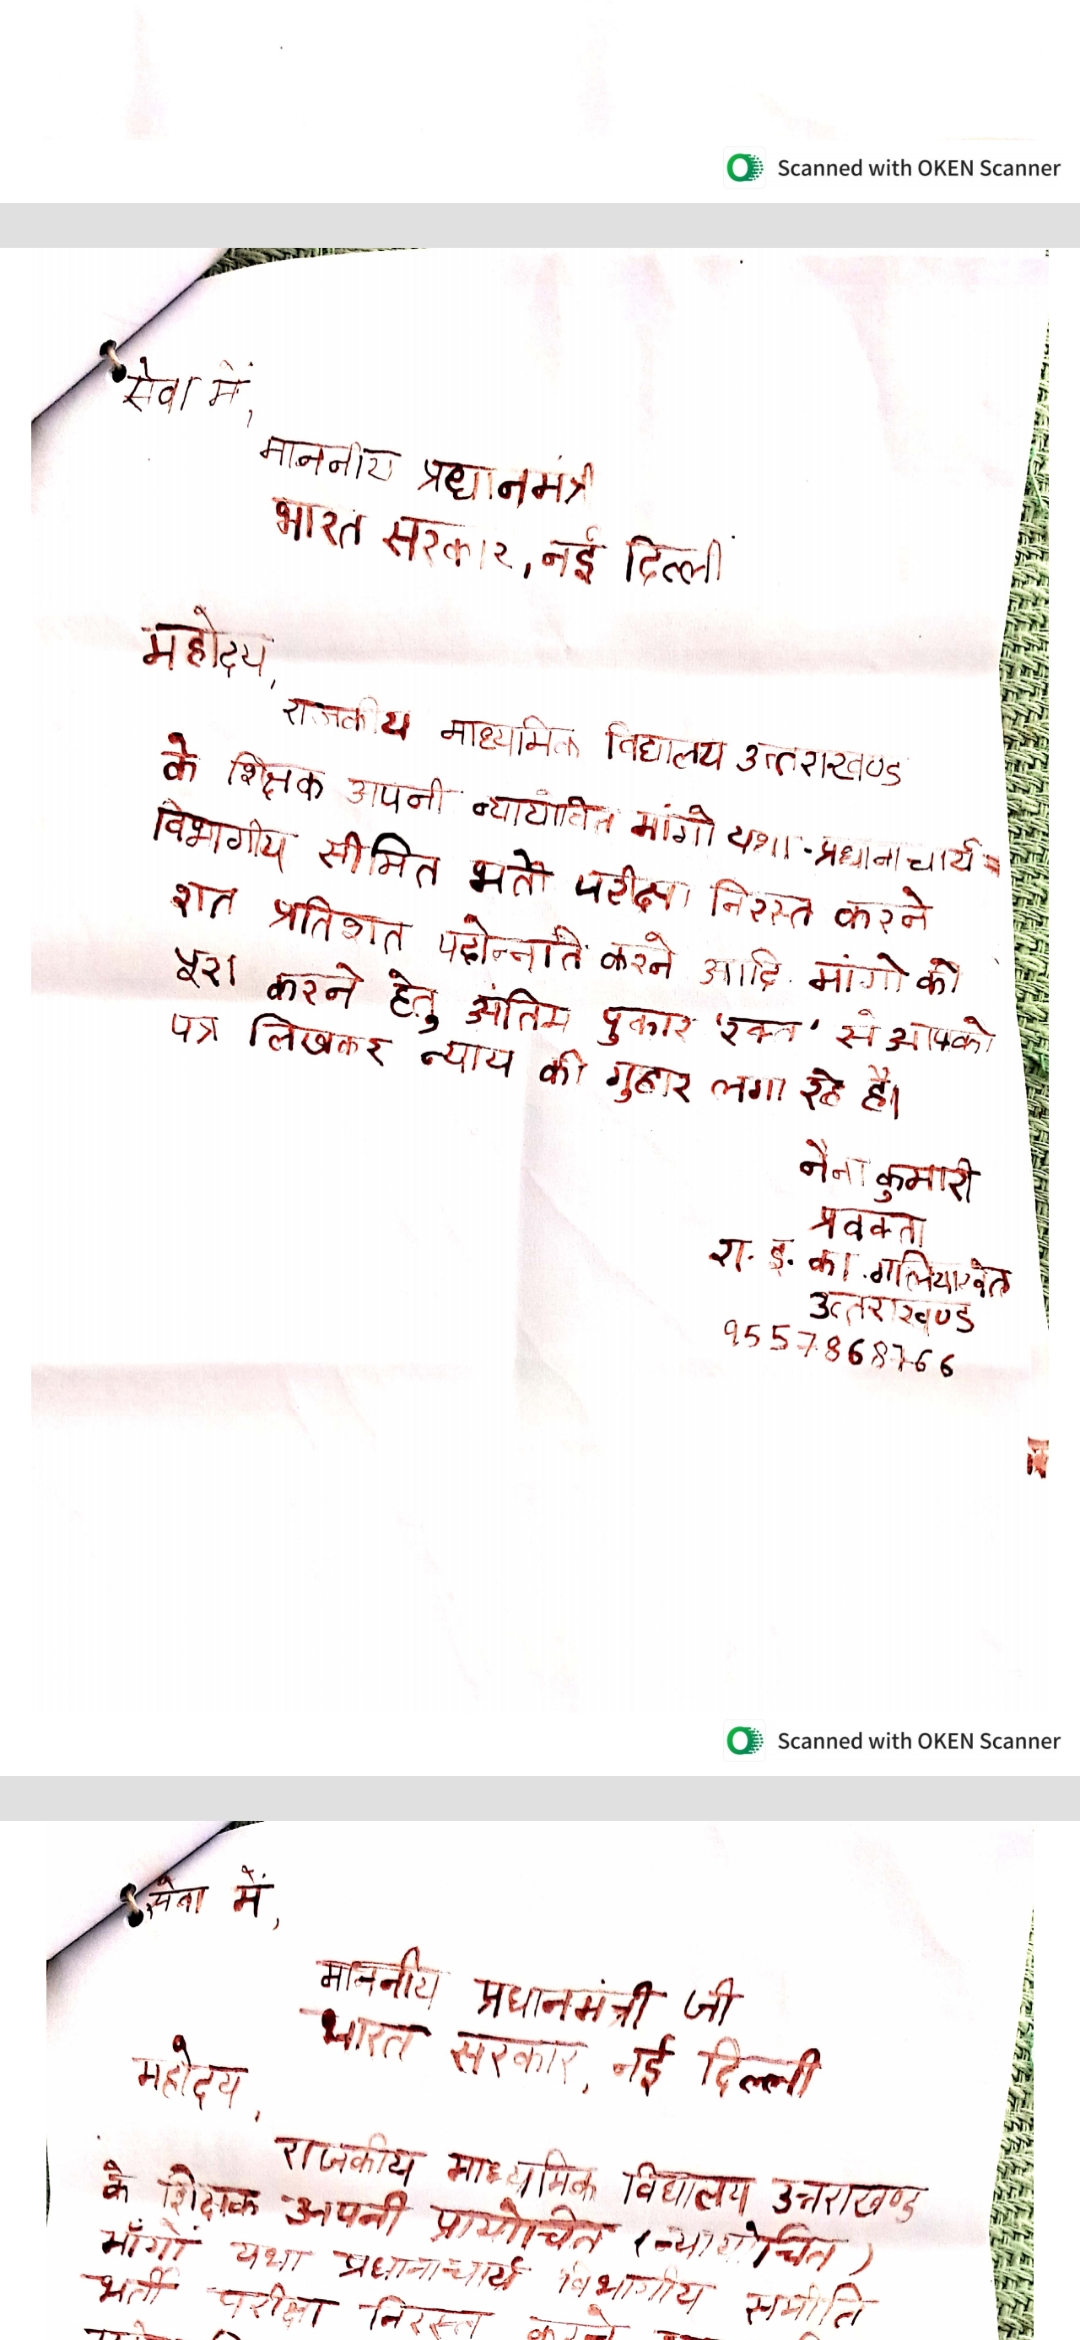 Scanned with OKEN Scanner
सेवा में,
माननीय प्रधानमंत्री
भारत सरकार, नई दिल्ली
महोदय,
राजकीय माध्यमिक विद्यालय उत्तराखण्ड
के शिक्षक अपनी न्यायोचित मांगों यथा-प्रधानाचार्य
विभागीय सीमित भर्ती परीक्षा निरस्त करने
शत प्रतिशत पदोन्नति करने आदि मांगो को
पूरा करने हेतु अंतिम पुकार 'रक्त' से आपको
पत्र लिखकर न्याय की गुहार लगा रहे हैं।
नैना कुमारी
प्रवक्ता
रा. इ. का. गलियाखेत
उत्तराखण्ड
9557868766
Scanned with OKEN Scanner
सेवा में,
माननीय प्रधानमंत्री जी
भारत सरकार, नई दिल्ली
महोदय,
राजकीय माध्यमिक विद्यालय उत्तराखण्ड
के शिक्षक अपनी प्रायोचित (न्यायोचित)
माँगों यथा प्रधानाचार्य विभागीय समीति
भर्ती परीक्षा निरस्त करने